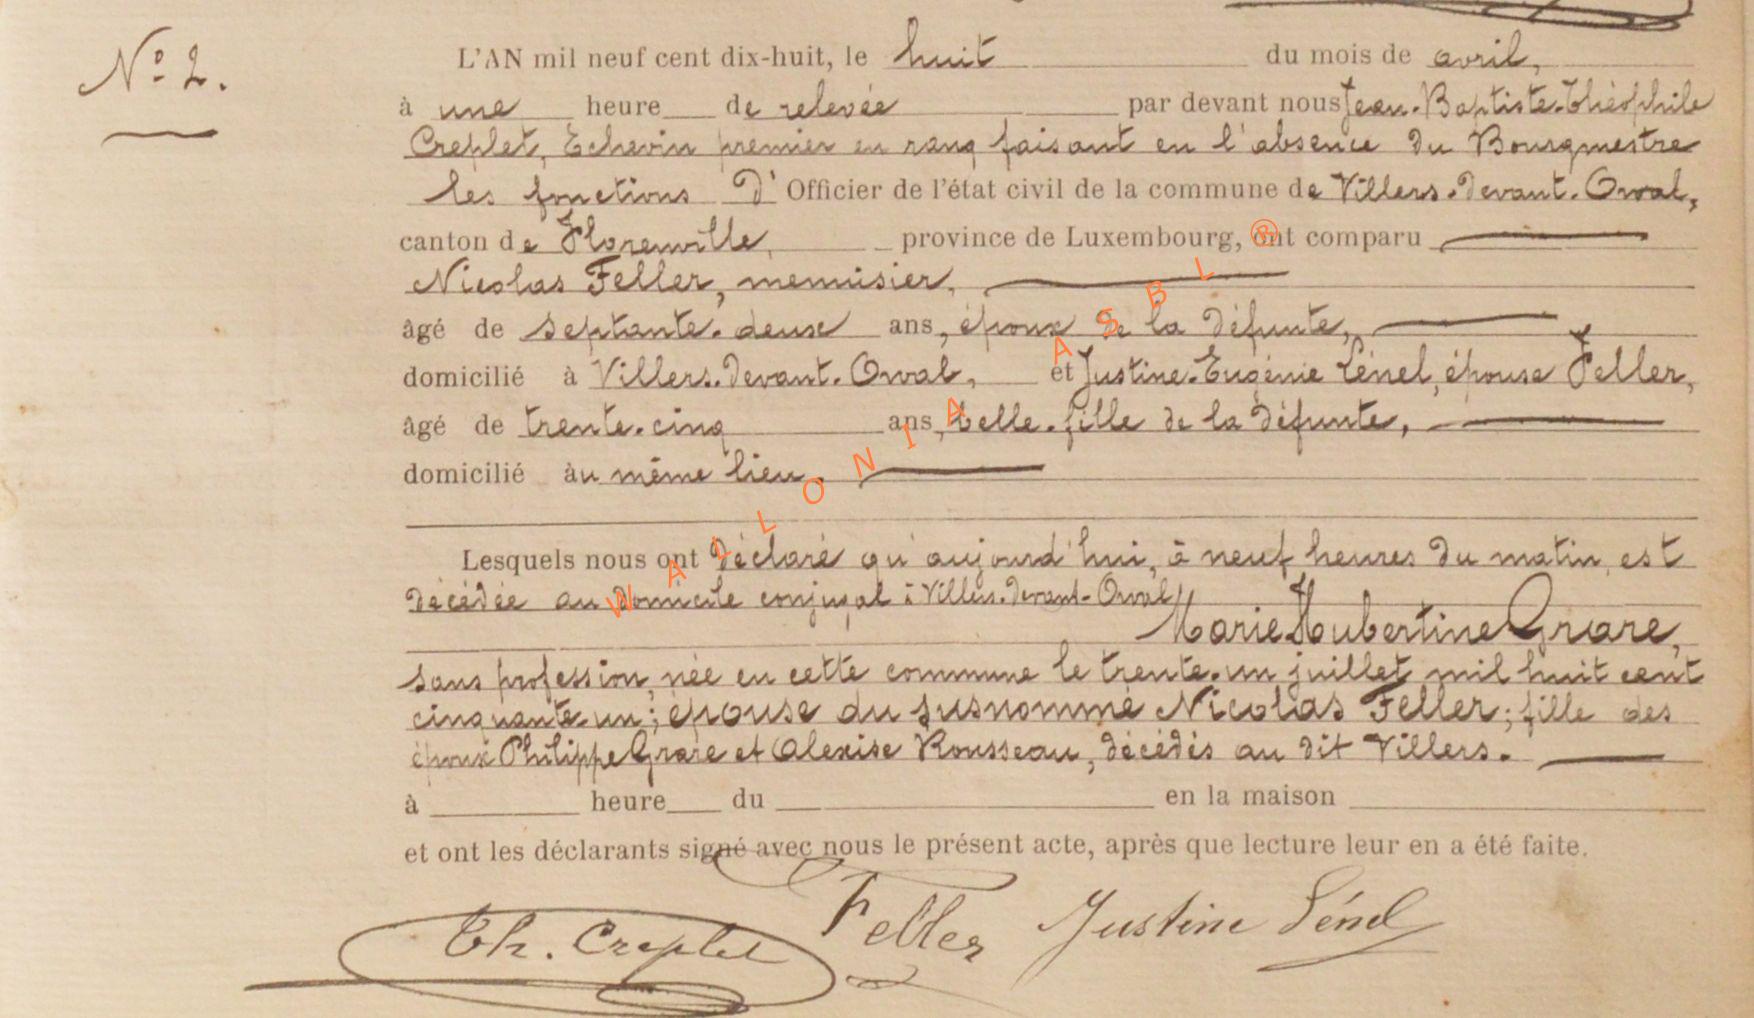 N° 2.
L'AN mil neuf cent dix-huit, le huit du mois de avril,
à une heure de relevée par devant nous Jean-Baptiste-Théophile
Creplet, Echevin premier en rang faisant en l'absence du Bourgmestre
les fonctions D' Officier de l'état civil de la commune de Villers-devant-Orval,
canton de Florenville, province de Luxembourg, ont comparu
Nicolas Feller, menuisier,
âgé de septante-deux ans, époux de la défunte,
domicilié à Villers-devant-Orval, et Justine-Eugénie Lénel, épouse Feller,
âgé de trente-cinq ans, belle-fille de la défunte,
domicilié au même lieu.
Lesquels nous ont déclaré qu'aujourd'hui, à neuf heures du matin, est
décédée au domicile conjugal à Villers-devant-Orval
Marie Hubertine Grare,
sans profession, née en cette commune le trente-un juillet mil huit cent
cinquante-un; épouse du susnommé Nicolas Feller; fille des
époux Philippe Grare et Alexise Rousseau, décédés au dit Villers.
à heure du en la maison
et ont les déclarants signé avec nous le présent acte, après que lecture leur en a été faite.
Th. Creplet Feller Justine Lénel
WALLONIA ASBL ®